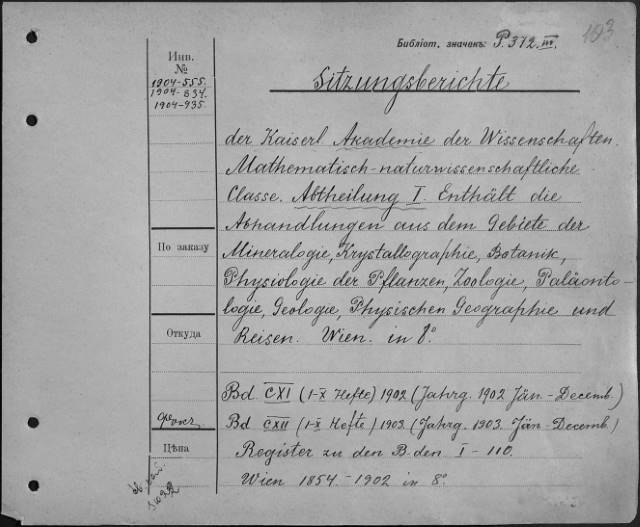 103
Библіот. значекъ: P. 372. III.
Инв.
№
1904-555.
1904-834.
1904-935.
Sitzungsberichte
der Kaiserl Akademie der Wissenschaften.
Mathematisch-naturwissenschaftliche
Classe. Abtheilung I. Enthält die
Abhandlungen aus dem Gebiete der
По заказу
Mineralogie, Krystallographie, Botanik,
Physiologie der Pflanzen, Zoologie, Paläonto-
logie, Geologie, Physischen Geographie und
Откуда
Reisen. Wien. in 8°.
Bd CXI (1-X Hefte) 1902 (Jahrg. 1902 Jän.-Decemb.)
Bd CXII (1-X Hefte) 1903. (Jahrg. 1903. Jän-Decemb.)
Цѣна
Register zu den B.den I - 110.
Wien 1854.-1902 in 8°.